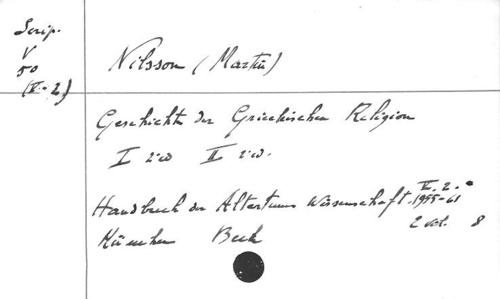 Scrip.
V
50
(V-2)
Nilsson (Martin)
Geschichte der Griechischen Religion
I 2 éd II 2 éd.
Handbuch der Altertums Wissenschaft. V. 2.
1955-61
2 vol. 8
München Beck